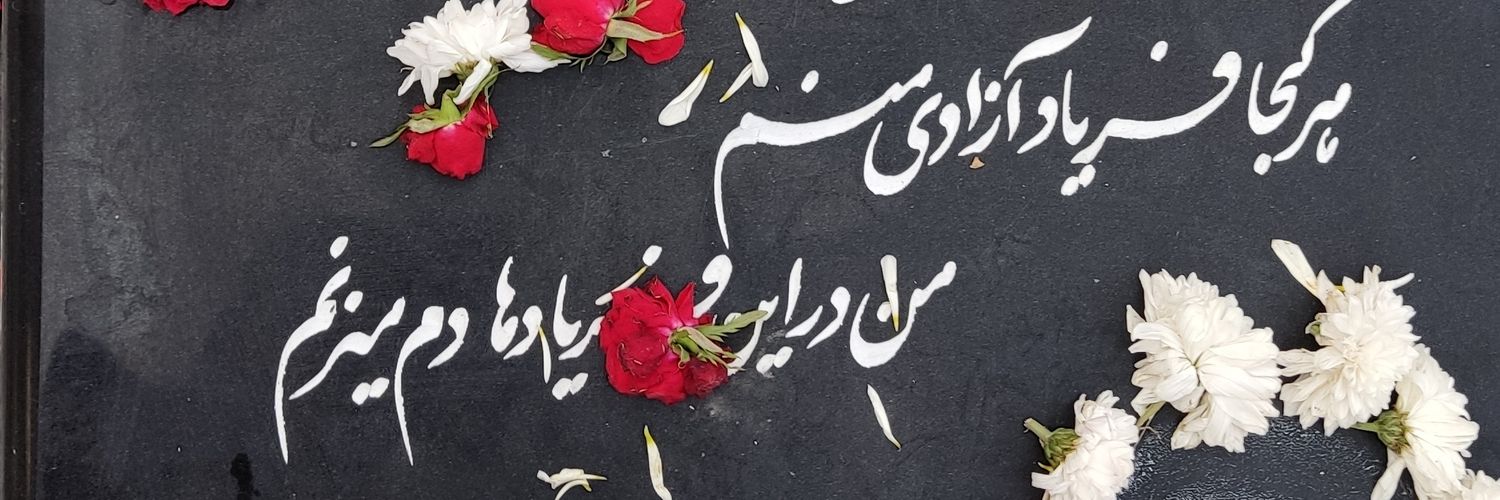 هر کجا فریاد آزادی منم
من در این فریادها دم میزنم